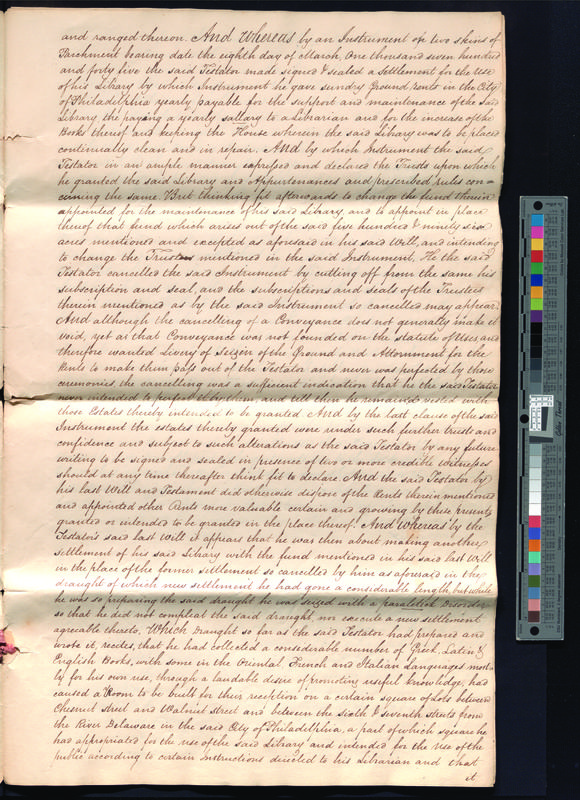 and ranged thereon. And Whereas by an Instrument on two skins of
Parchment bearing date the eighth day of March, One thousand seven hundred
and forty five the said Testator made signed & sealed a Settlement for the Use
of his Library by which Instrument he gave sundry Ground rents in the City
of Philadelphia yearly payable for the support and maintenance of the said
Library the paying a yearly sallary to a Librarian and for the increase of the
Books thereof and keeping the House wherein the said Libary was to be placed
continually clean and in repair. And by which Instrument the said
Testator in an ample manner expressed and declared the Trusts upon which
he granted the said Library and Appurtenances and prescribed rules con-
cerning the same. But thinking fit afterwards to change the fund therein
appointed for the maintenance of his said Library, and to appoint in place
thereof that fund which arises out of the said five hundred & ninety six
acres mentioned and excepted as aforesaid in his said Will, and intending
to change the Trustees mentioned in the said Instrument. He the said
Testator cancelled the said Instrument by cutting off from the same his
subscription and seal, and the subscriptions and seals of the Trustees
therein mentioned as by the said Instrument so cancelled may appear.
And although the cancelling of a Conveyance does not generally make it
void, yet as that Conveyance was not founded on the statute of Uses and
therefore wanted Livery of Seizin of the Ground and Attornment for the
Rents to make them pass out of the Testator and never was perfected by those
ceremonies the cancelling was a sufficient indication that he the said Testator
never intended to perfect it by them, and till then he remained vested with
those Estates thereby intended to be granted And by the last clause of the said
Instrument the estates thereby granted were under such further trusts and
confidence and subject to such alterations as the said Testator by any future
writing to be signed and sealed in presence of two or more credible witnesses
should at any time thereafter think fit to declare And the said Testator by
his last Will and Testament did otherwise dispose of the Rents therein mentioned
and appointed other Rents more valuable certain and growing by these presents
granted or intended to be granted in the place thereof. And Whereas by the
Testators said last Will it appears that he was then about making another
settlement of his said Library with the fund mentioned in his said last Will
in the place of the former settlement so cancelled by him as aforesaid in the
draught of which new settlement he had gone a considerable length, but while
he was so preparing the said draught he was seized with a paralitick Disorder
so that he did not compleat the said draught nor execute a new settlement
agreable thereto. Which Draught so far as the said Testator had prepared and
wrote it, recites, that he had collected a considerable number of Greek, Latin &
English Books, with some in the Oriental, French and Italian Languages most-
ly for his own use, through a laudable desire of promoting useful knowledge, had
caused a Room to be built for their reception on a certain square of Lots between
Chesnut Street and Walnut street and between the sixth & seventh streets from
the River Delaware in the said City of Philadelphia, a part of which square he
had appropriated for the use of the said Library and intended for the Use of the
public according to certain Instructions directed to his Librarian and that
it